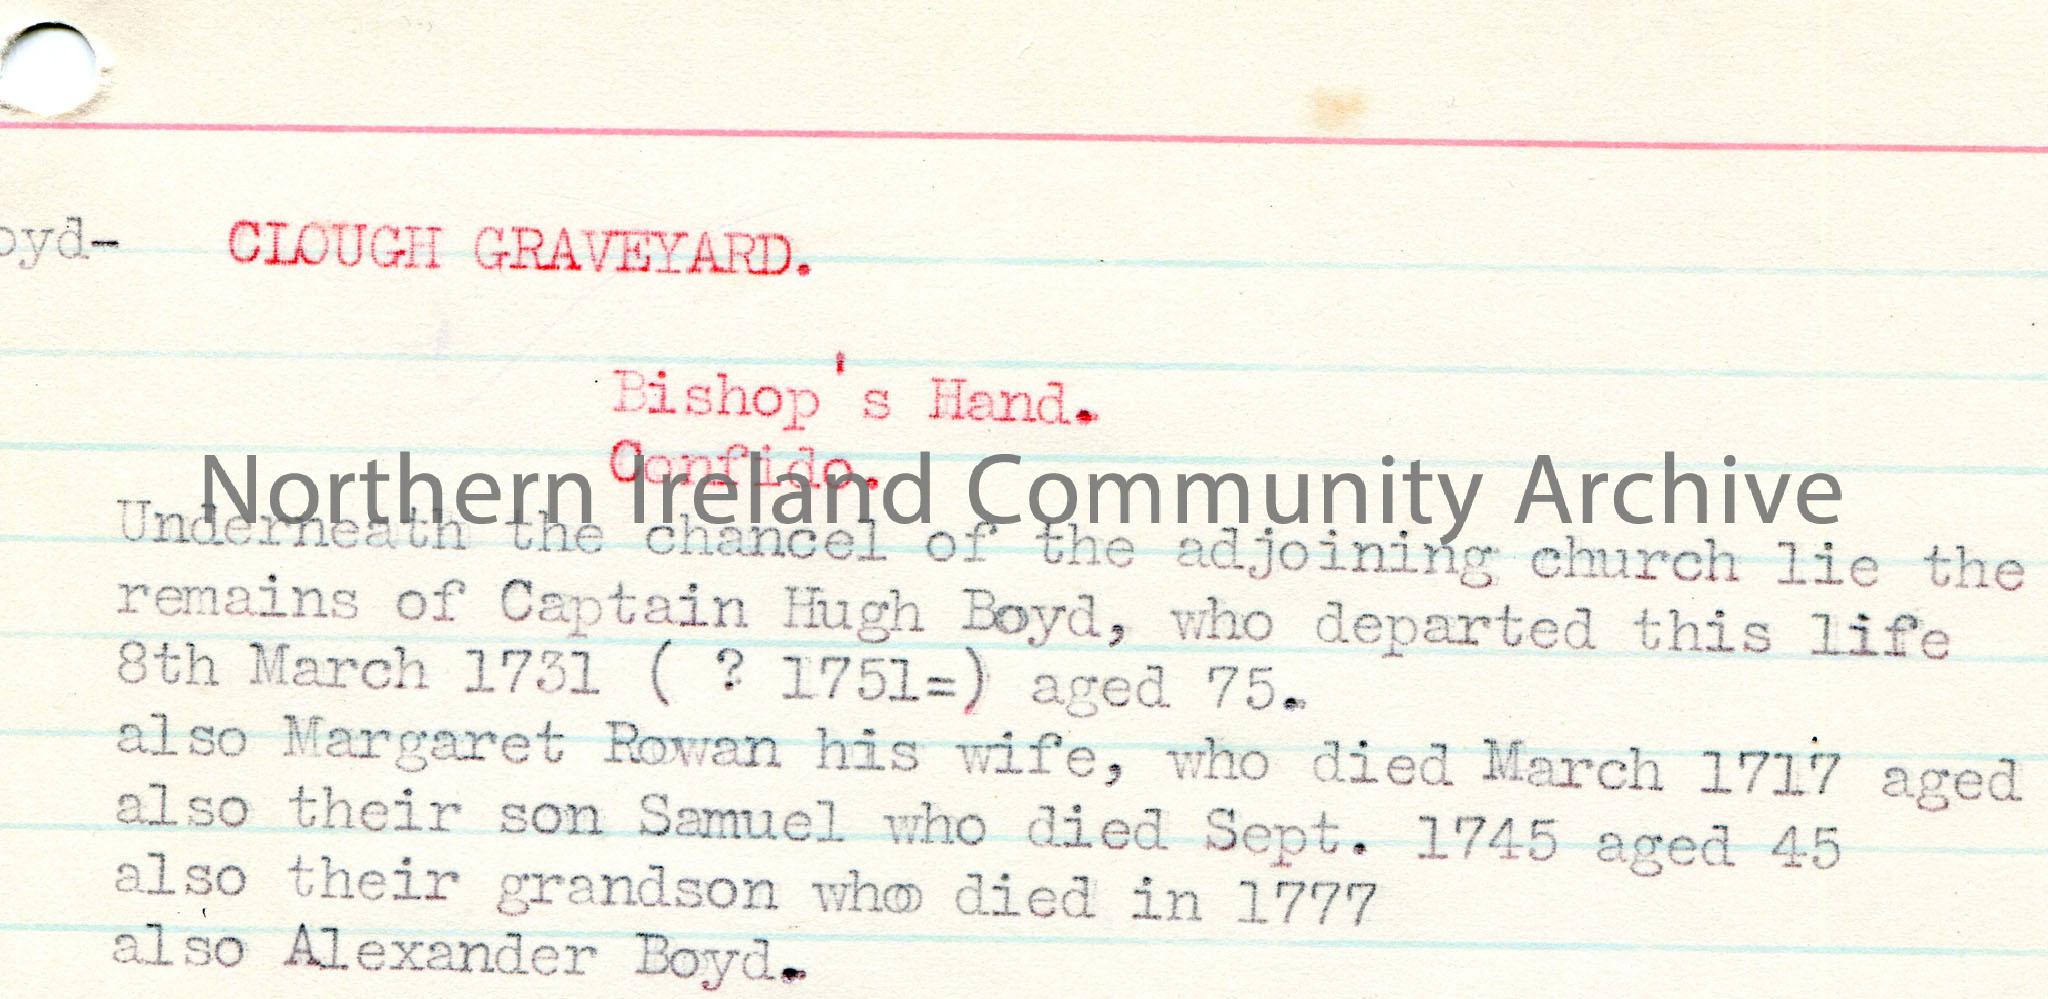 oyd- CLOUGH GRAVEYARD.
Bishop's Hand.
Confido.
Northern Ireland Community Archive
Underneath the chancel of the adjoining church lie the
remains of Captain Hugh Boyd, who departed this life
8th March 1731 ( ? 1751=) aged 75.
also Margaret Rowan his wife, who died March 1717 aged
also their son Samuel who died Sept. 1745 aged 45
also their grandson who died in 1777
also Alexander Boyd.